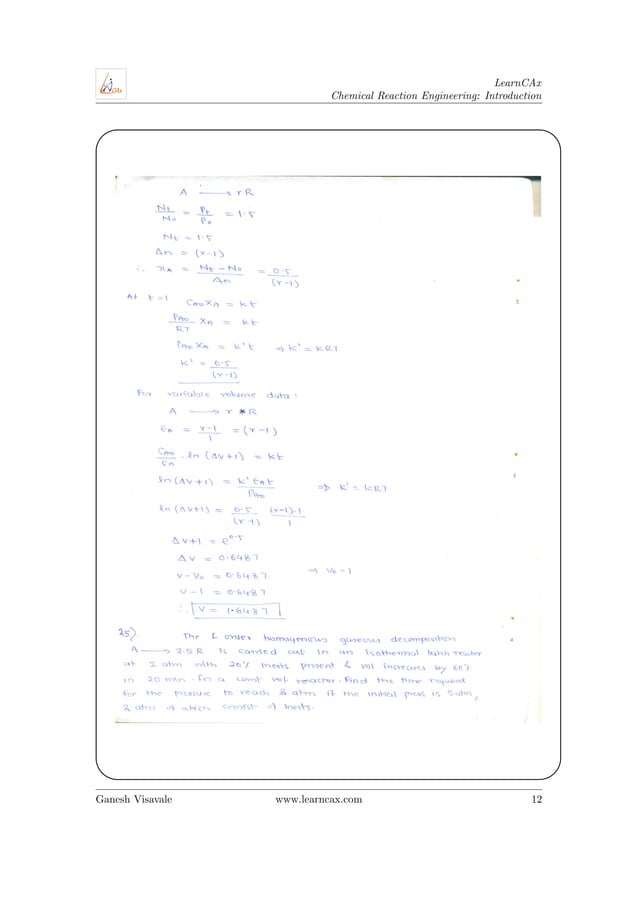 LearnCAx
Chemical Reaction Engineering: Introduction
A ⟶ rR
Nt/No = Pt/Po = 1.5
Nt = 1.5
Δn = (r-1)
∴ xA = (Nt - No)/Δn = 0.5/(r-1)
At t=1 CAo XA = kt
PAo/RT XA = kt
PAo XA = k't ⇒ k' = kRT
k' = 0.5/(r-1)
For variable volume data :
A ⟶ r * R
ЄA = (r-1)/1 = (r-1)
CAo/ЄA . ln (ΔV+1) = kt
ln (ΔV+1) = k' ЄA t/PAo ⇒ k' = kRT
ln (ΔV+1) = 0.5/(r-1) (r-1).1/1
ΔV+1 = e^0.5
ΔV = 0.6487
V - Vo = 0.6487 ⇒ Vo = 1
V - 1 = 0.6487
∴ V = 1.6487
25). The I order homogenous gaseous decomposition
A ⟶ 2.5 R is carried out in an Isothermal batch reactor
at 2 atm with 20% inerts present & vol increases by 60%
in 20 min. In a const vol. reactor. Find the time required
for the pressure to reach 8 atm if the initial press is 5 atm,
2 atm of which consist of Inerts.
Ganesh Visavale www.learncax.com 12